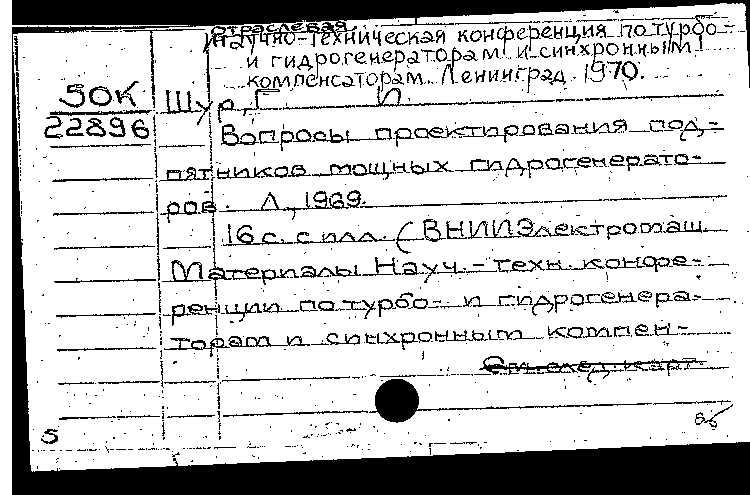 отраслевая
Научно-техническая конференция по турбо-
и гидрогенераторам и синхронным
компенсаторам. Ленинград. 1970.
50К
22896
Шур, Г И.
Вопросы проектирования под-
пятников мощных гидрогенерато-
ров. Л., 1969.
16 с. с илл. (ВНИИЭлектромаш.
Материалы Науч.-техн. конфе-
ренции по турбо- и гидрогенера-
торам и синхронным компен-
См. след. карт.
5